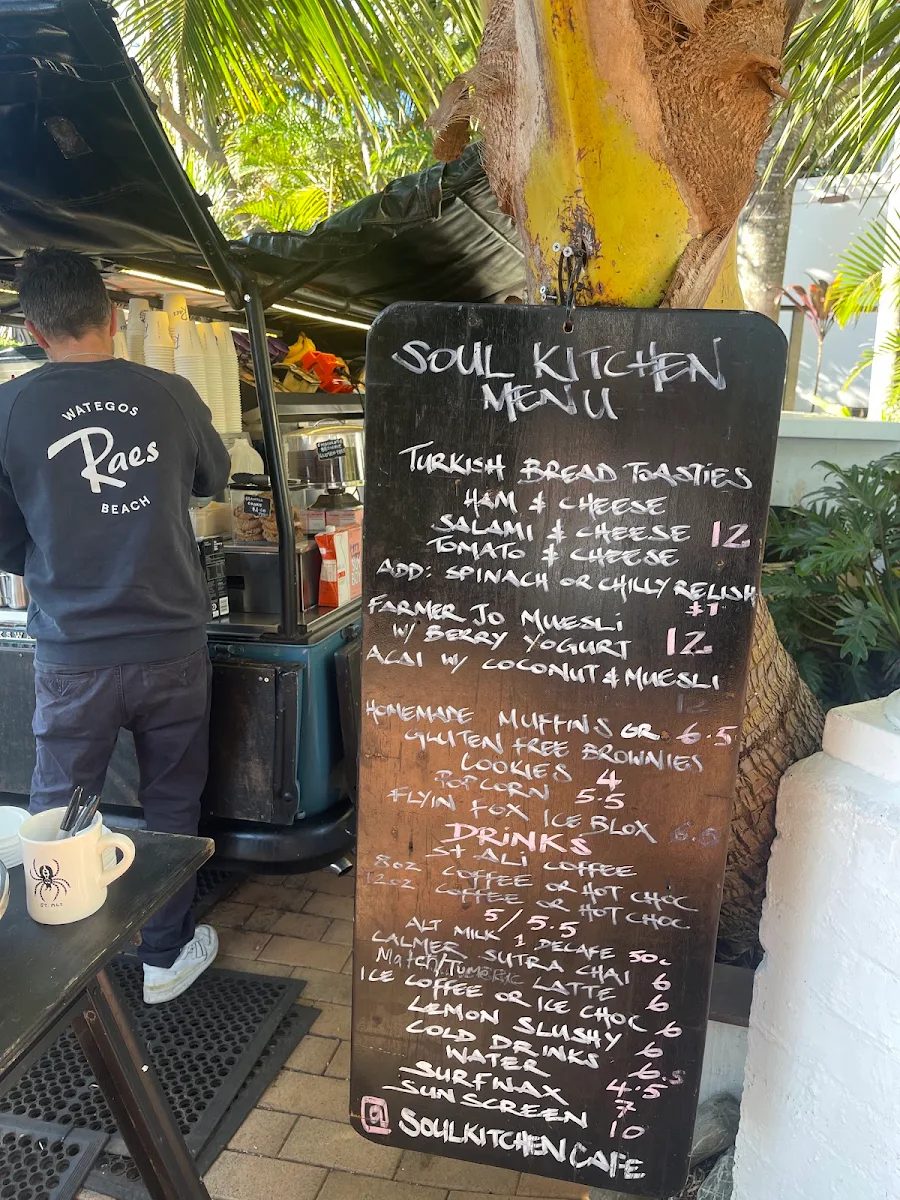 WATEGOS
Raes
BEACH
SOUL KITCHEN
MENU
TURKISH BREAD TOASTIES
HAM & CHEESE
SALAMI & CHEESE 12
TOMATO & CHEESE
ADD: SPINACH OR CHILLY RELISH
$1
FARMER JO MUESLI
W/ BERRY YOGURT 12
ACAI W/ COCONUT & MUESLI
12
HOMEMADE MUFFINS GR 6.5
GLUTEN FREE BROWNIES
COOKIES 4
POPCORN 5.5
FLYIN FOX ICE BLOX 6.5
DRINKS
ST ALI COFFEE
8OZ COFFEE OR HOT CHOC
12OZ COFFEE OR HOT CHOC
5/5.5
ALT MILK 1 DECAFE 50c
CALMER SUTRA CHAI 6
Match/TUMERIC LATTE 6
ICE COFFEE OR ICE CHOC 6
LEMON SLUSHY 6
COLD DRINKS 6.5
WATER 4.5
SURFWAX 7
SUNSCREEN 10
@ SOULKITCHENCAFE
ST. ALi